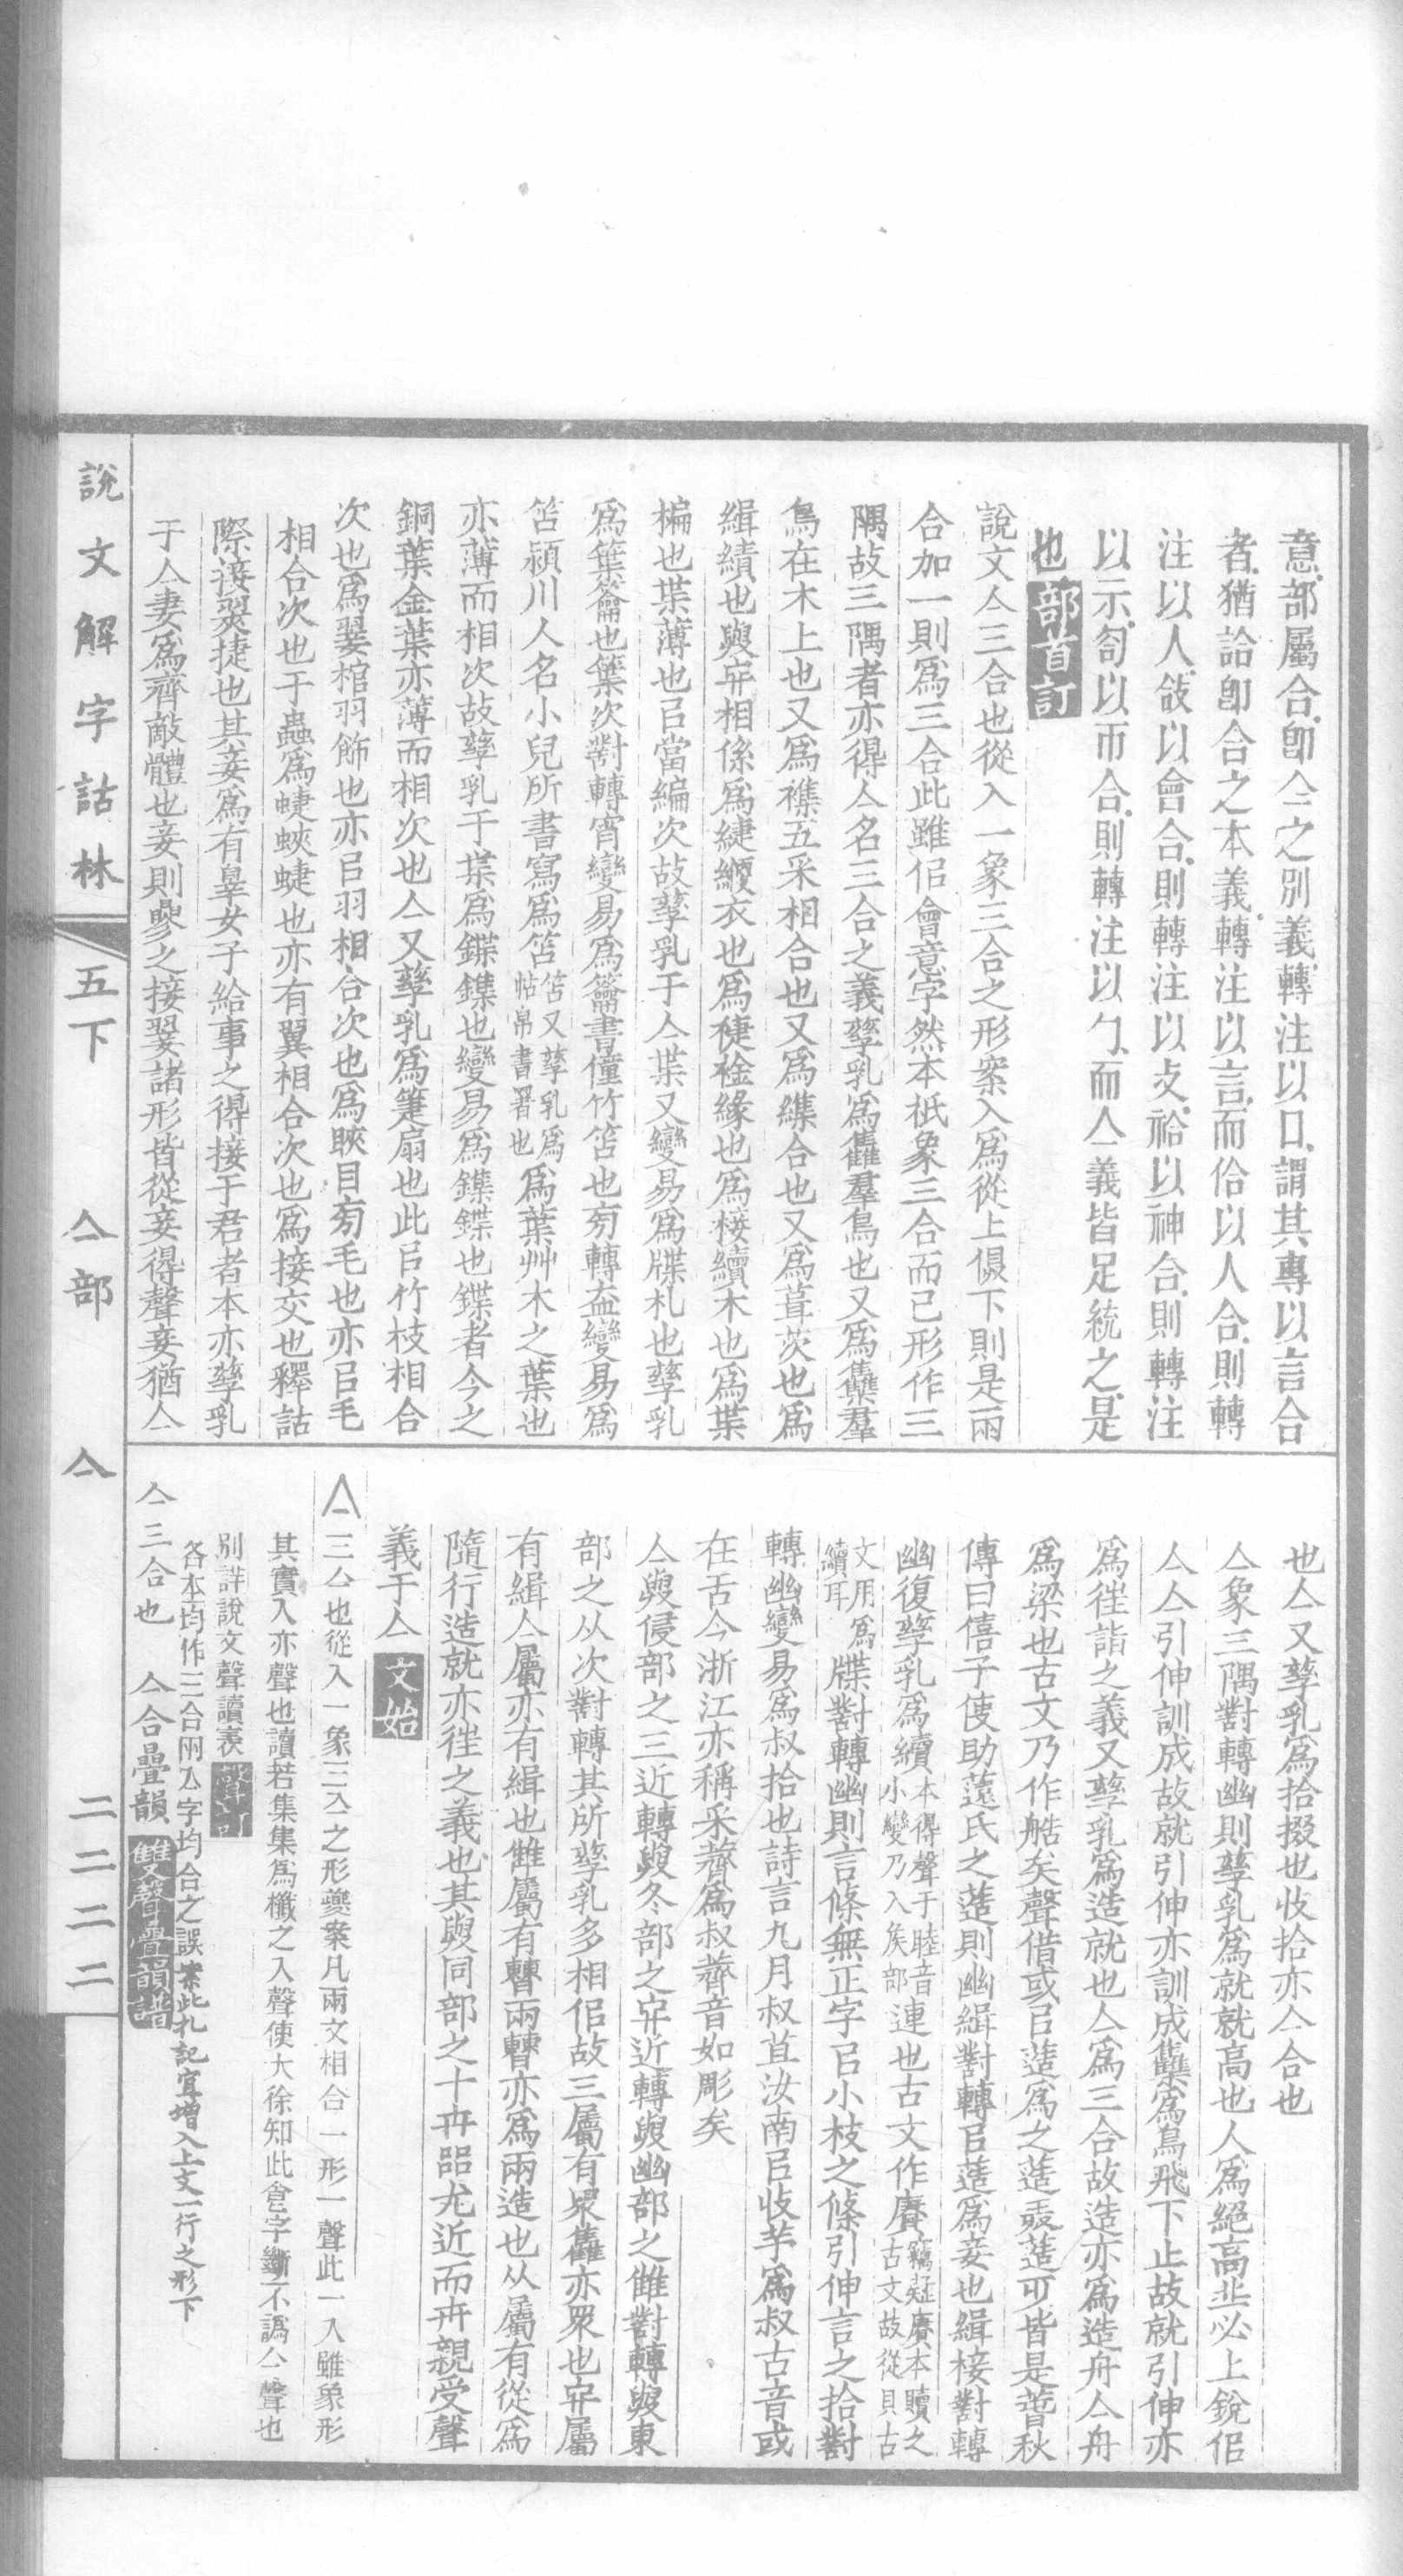 意部屬合卽亼之別義轉注以口謂其專以言合
者猶詥卽合之本義轉注以言而佮以人合則轉
注以人敆以會合則轉注以攴祫以神合則轉注
以示匌以帀合則轉注以勹而亼義皆足統之是
也部首訂
說文亼三合也從入一象三合之形案入爲從上俱下則是兩
合加一則爲三合此雖侣會意字然本衹象三合而已形作三
隅故三隅者亦得亼名三合之義孳乳爲雥羣鳥也又爲雧羣
鳥在木上也又爲襍五采相合也又爲𦆮合也又爲葺茨也爲
緝績也與𠕋相係爲緁緶衣也爲䘹衱緣也爲椄續木也爲枼
楄也枼薄也㠯當編次故孳乳于亼枼又變易爲牒札也孳乳
爲箑籥也箑次對轉宵變易爲籥書僮竹笘也㫄轉盇變易爲
笘潁川人名小兒所書寫爲笘笘又孳乳爲帖帛書署也爲葉艸木之葉也
亦薄而相次故孳乳于枼爲鍱鏶也變易爲鏶鍱也鍱者今之
銅葉金葉亦薄而相次也亼又孳乳爲箑扇也此㠯竹枝相合
次也爲翣棺羽飾也亦㠯羽相合次也爲䀹目㫄毛也亦㠯毛
相合次也于蟲爲蜨蛺蜨也亦有翼相合次也爲接交也釋詁
際接翜捷也其妾爲有辠女子給事之得接于君者本亦孳乳
于亼妻爲齊敵體也妾則參之接翜諸形皆從妾得聲妾猶亼
也亼又孳乳爲拾掇也收拾亦亼合也
亼象三隅對轉幽則孳乳爲就就高也人爲絕高丠必上銳侣
亼亼引伸訓成故就引伸亦訓成雧爲鳥飛下止故就引伸亦
爲徃詣之義又孳乳爲造就也亼爲三合故造亦爲造舟亼舟
爲梁也古文乃作艁矣聲借或㠯䔏爲之䔏叜䔏可皆是䔏秋
傳曰僖子使助薳氏之䔏則幽緝對轉㠯䔏爲妾也緝椄對轉
幽復孳乳爲續本得聲于睦音小變乃入矦部連也古文作賡竊疑賡本贖之古文故從貝古
文用爲續耳牒對轉幽則言條無正字㠯小枝之條引伸言之拾對
轉幽變易爲叔拾也詩言九月叔苴汝南㠯收芋爲叔古音或
在舌今浙江亦稱采薺爲叔薺音如彫矣
亼與侵部之三近轉與冬部之𠕋近轉與幽部之雔對轉與東
部之从次對轉其所孳乳多相侣故三屬有㐺雥亦眾也𠕋屬
有緝亼屬亦有緝也雔屬有雦兩曹亦爲兩造也从屬有從爲
隨行造就亦徃之義也其與同部之十卅㗊尤近而卅親受聲
義于亼文始
亼三亼也從入一象三入之形夔案凡兩文相合一形一聲此一入雖象形
其實入亦聲也讀若集集爲櫼之入聲使大徐知此會字斷不譌亼聲也
別詳說文聲讀表聲訂
各本均作三合兩亼字均合之誤案此札記宜增入上文一行之形下
亼三合也 亼合疊韻雙聲疊韻譜
說文解字詁林 五下 亼部 亼 二二二二